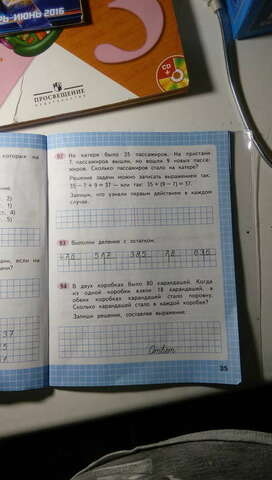 РЬ-ИЮНЬ 2016
ПРОСВЕЩЕНИЕ
ИЗДАТЕЛЬСТВО
CD+
которая на
92 На катере было 35 пассажиров. На пристани
7 пассажиров вышли, но вошли 9 новых пасса-
жиров. Сколько пассажиров стало на катере?
Решение задачи можно записать выражением так:
35 − 7 + 9 = 37 — или так: 35 + (9 − 7) = 37.
Запиши, что узнали первым действием в каждом
случае.
93 Выполни деление с остатком.
94 В двух коробках было 80 карандашей. Когда
из одной коробки взяли 18 карандашей, в
обеих коробках карандашей стало поровну.
Сколько карандашей стало в каждой коробке?
Запиши решение, составляя выражения.
Ответ:
35
2)
1)
4)
5)
если на
37
5
7